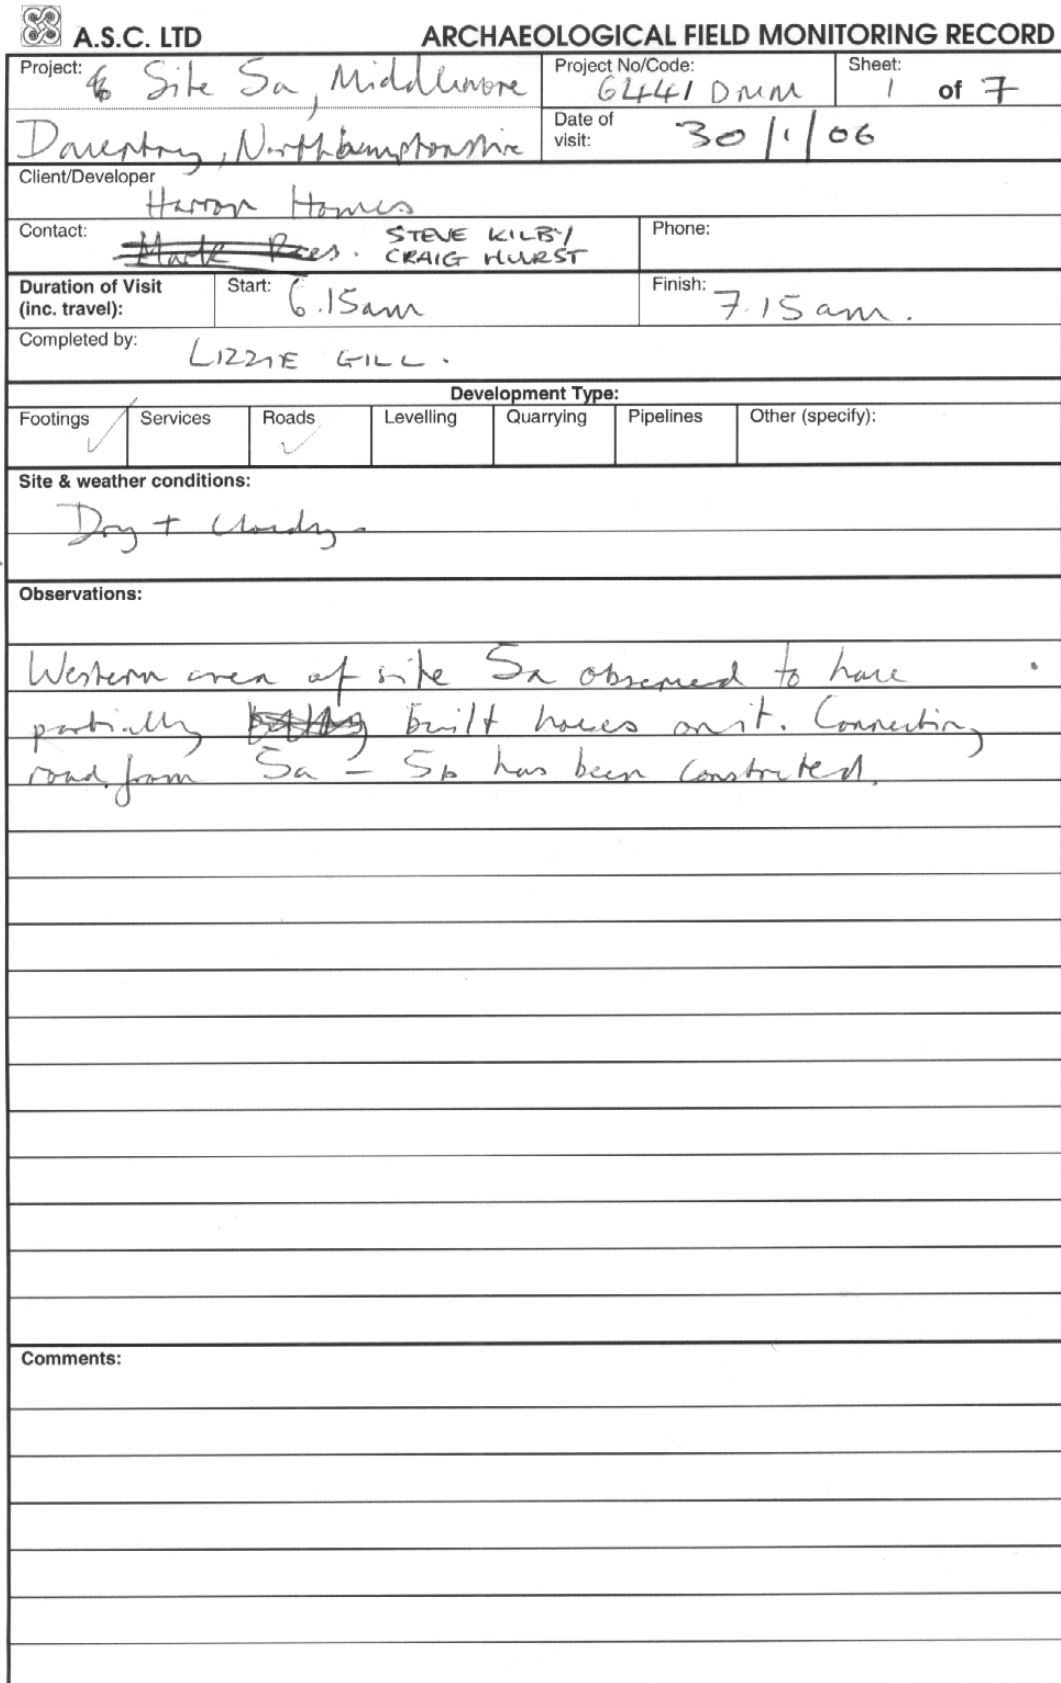 A.S.C. LTD ARCHAEOLOGICAL FIELD MONITORING RECORD
Project: Site 5a, Middlemore
Daventry, Northamptonshire
Project No/Code: 6441 DMM
Sheet: 1 of 7
Date of visit: 30/1/06
Client/Developer
Harron Homes
Contact: Mark Rees. STEVE KILBY/
CRAIG HURST
Phone:
Duration of Visit
(inc. travel):
Start: 6.15am
Finish: 7.15am.
Completed by: LIZZIE GILL.
Development Type:
Footings ✓ Services Roads ✓ Levelling Quarrying Pipelines Other (specify):
Site & weather conditions:
Dry + Cloudy.
Observations:
Western area of site 5a observed to have
partially built houses on it. Connecting
road from 5a - 5b has been constructed.
Comments: